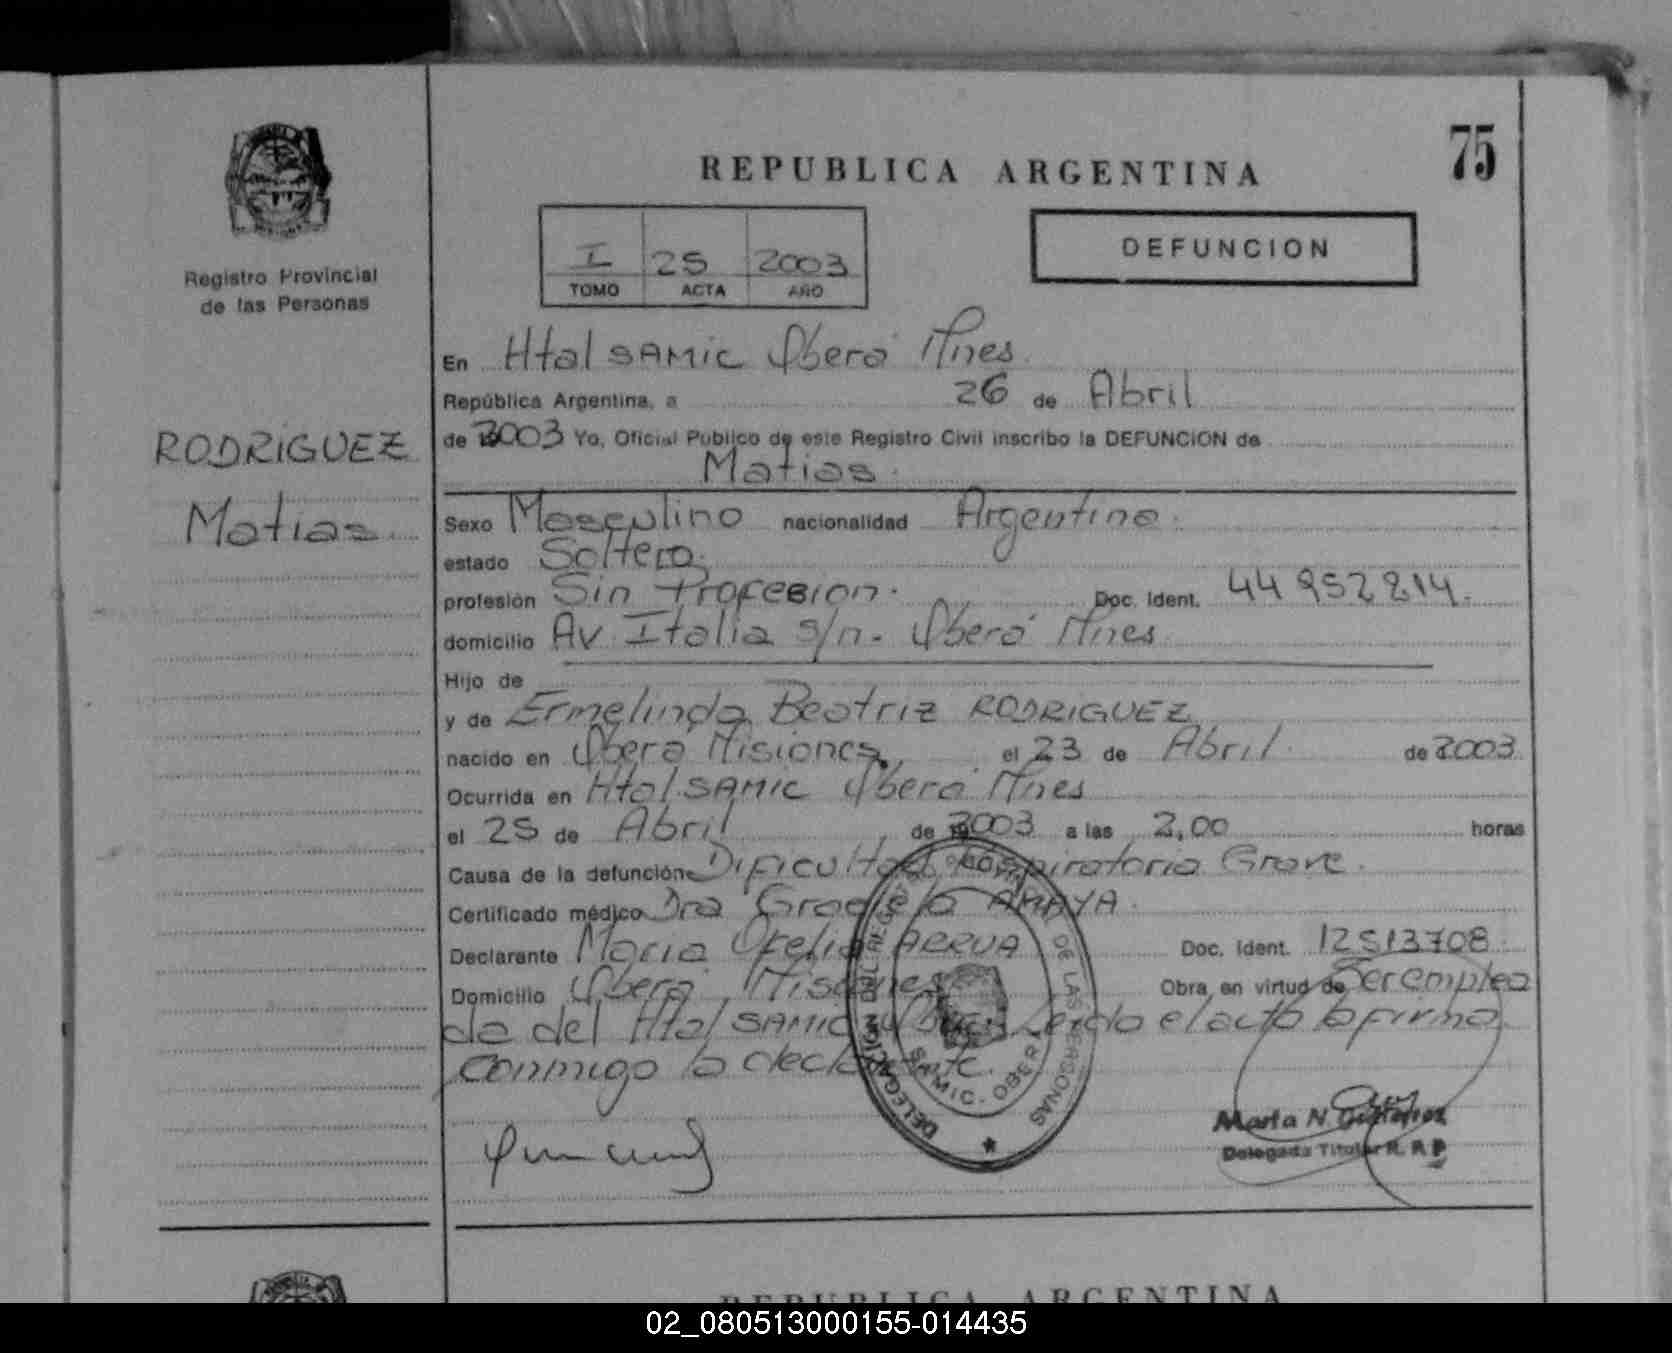 75
REPUBLICA ARGENTINA
I 25 2003
TOMO ACTA AÑO
DEFUNCION
Registro Provincial
de las Personas
RODRIGUEZ
Matias
En Htal SAMIC Oberá Mnes
República Argentina, a 26 de Abril
de 2003 Yo, Oficial Publico de este Registro Civil inscribo la DEFUNCION de
Matias
Sexo Masculino nacionalidad Argentina
estado Soltero
profesión Sin Profesion. Doc. Ident.
domicilio Av. Italia s/n. Oberá Mnes
Hijo de
y de Ermelinda Beatriz RODRIGUEZ
nacido en Oberá Misiones, el 23 de Abril de 2003
Ocurrida en Htal SAMIC Oberá Mnes
el 25 de Abril de 2003 a las 2,00 horas
Causa de la defunción Dificultad Respiratoria Grave.
Certificado médico Dra Graciela AMAYA.
Declarante Maria Ofelia ARRUA Doc. Ident. 12513708
Domicilio Oberá Misiones Obra en virtud de Ser emplea
da del Htal SAMIC Oberá Leido el acta la firma
conmigo la declarante.
DELEGACION DEL REGISTRO PROVINCIAL DE LAS PERSONAS
SAMIC - OBERA
Marta N.
Delegada Titular R. P. P
REPUBLICA ARGENTINA
02_080513000155-014435